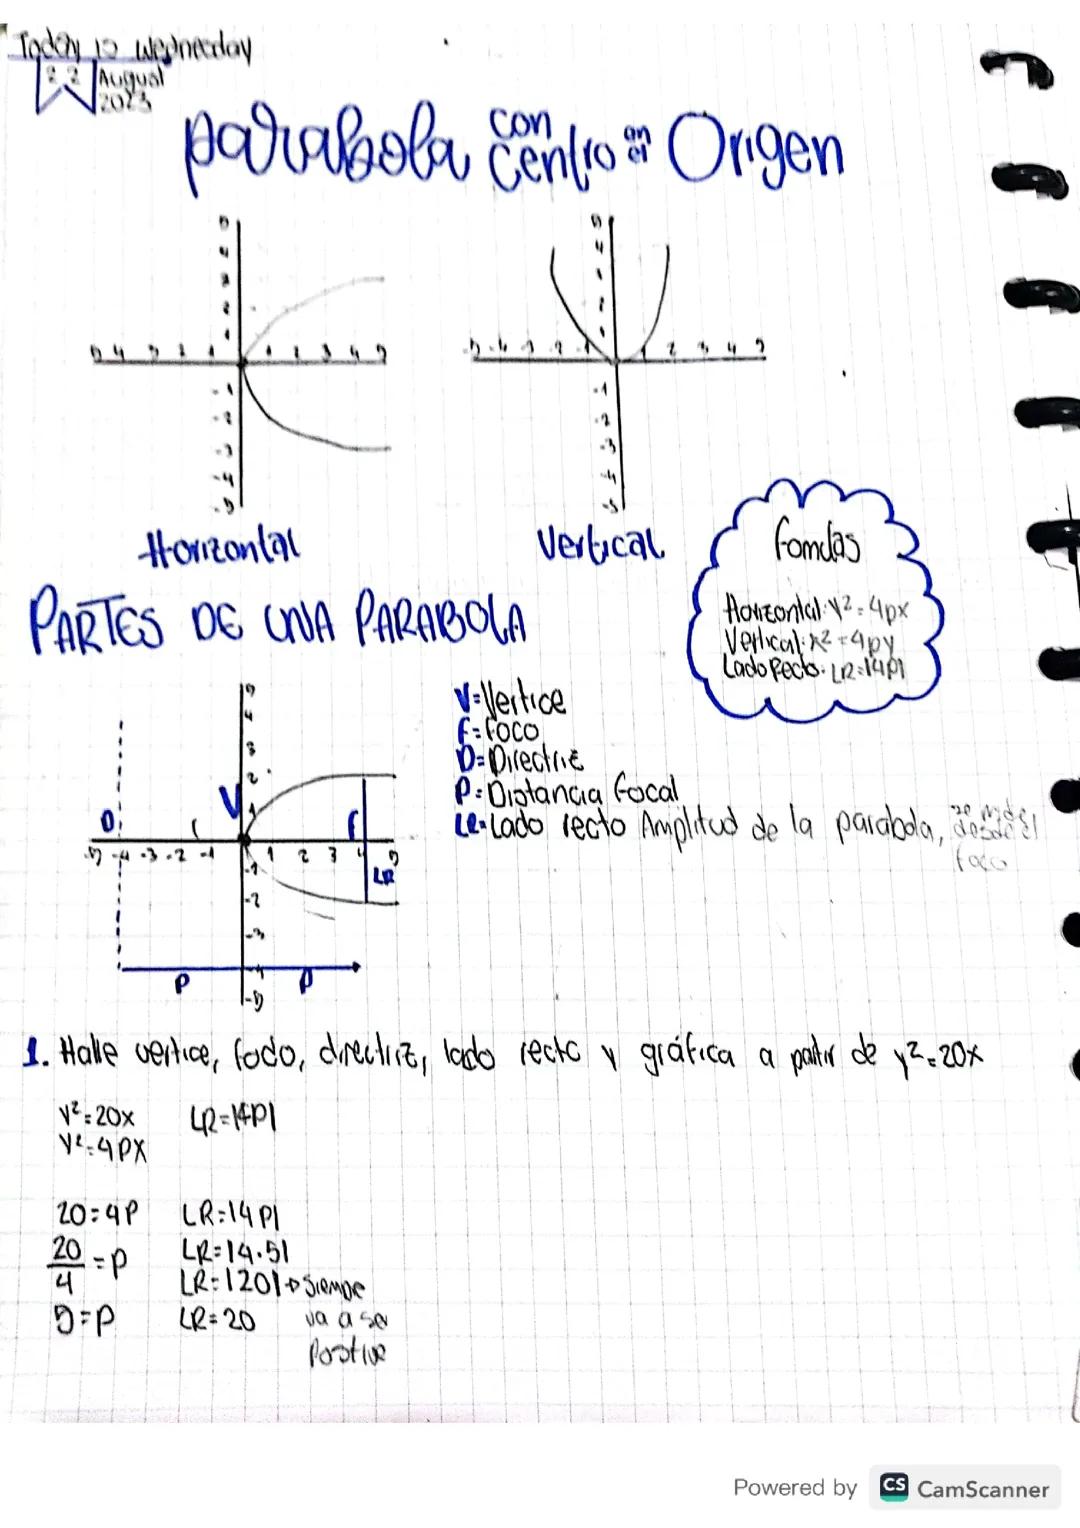 Today is Wednesday
22 August
2023
parabola con centro en el Origen
5
4
3
2
1
5 4 3 2 1 1 2 3 4 5
-1
-2
-3
-4
-5
5
4
2
1
-5 -4 -3 -2 -1 1 2 3 4 5
-1
-2
-3
-4
-5
Horizontal
Vertical
Horizontal: Y² = 4px
Vertical: x² = 4py
Lado Recto: LR = |4P|
PARTES DE UNA PARABOLA
V = Vertice
F = foco
D = Directriz
P = Distancia focal
LR = Lado recto Amplitud de la parabola, se mide desde el
foco
5
4
3
2
1
V
D
F
-5 -4 -3 -2 -1 1 2 3 4 5
LR
-1
-2
-3
-4
-5
P P
1. Halle vertice, fodo, directriz, lado recto y gráfica a partir de y² = 20x
Y² = 20x LR = |4P|
Y² = 4PX
20 = 4P LR = |4P|
20/4 = P LR = |4·5|
LR = |20| → Siempre
5 = P LR = 20 va a ser
Positive
Powered by CS CamScanner